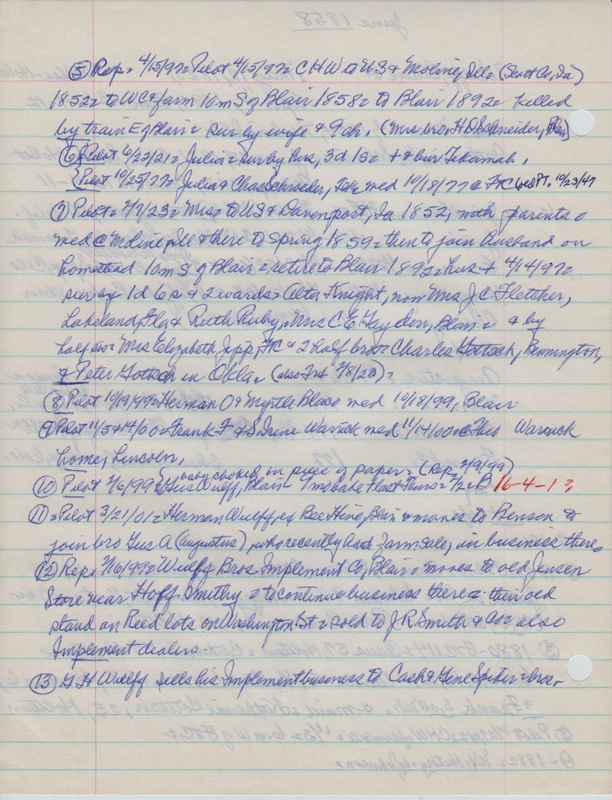 ⑤ Rep. 4/15/97 = Pilot 4/15/97 = C H W to US & Moline, Ill = (Scott Co, Ia)
1852 = to WC & farm 10 m S of Blair 1858 = to Blair 1892 = killed
by train E of Blair = sur by wife & 9 ch. (Mrs bro. H D Schneider,
⑥ Pilot = Julia = sur by hus, 3d 1s = + & bur Tekamah.
Pilot 10/25/77 = Julia & Chas Schroeder, Tek med 10/18/77 @ FC
⑦ Pilot = 2/7/23 = Mrs = to US & Davenport, Ia 1852, with parents =
med @ Moline, Ill & there to Spring 1859 = then to join husband on
homestead 10 m S of Blair = retire to Blair 1892 = hus + 4/14/97 =
sur by 1d 6s & 2 wards = Alta Knight, now Mrs J C Fletcher,
Lakeland, Fla & Ruth Ruby, Mrs C E Haydon, Blair = & by
half sis = Mrs Elizabeth Jipp, FC & 2 half bro = Charles Gottsch, Bennington,
& Peter Gottsch in Okla. (also Ent 2/8/23) =
⑧ Pilot 10/19/99 = Herman O & Myrtle Blaco med 10/18/99, Blair
9 Pilot 11/5 & 14/00 = Frank F & S Irene Warrick med 11/14/00 @ Warrick
home, Lincoln,
baby choked on piece of paper = (Rep. 2/9/99)
⑩ Pilot 2/6/99 = Gus Wulff, Blair = 1 mo babe + last Thurs = 2/2 = B 16-4-1?
⑪ = Pilot 3/21/01 = Herman Wulff, of Blair = moves to Benson &
join bro Gus A (Augustus), who recently had farm sale, in business there.
⑫ Rep = 7/6/99 = Wulff Bros. Implement Co, Blair = moves to old Jensen
Store near Hoff Smithy = to continue business there = their old
stand on Reed lots on Washington St = sold to J. R. Smith & Co = also
Implement dealers.
⑬ G H Wulff sells his Implement business to Cash & Gene Spiker = bros.